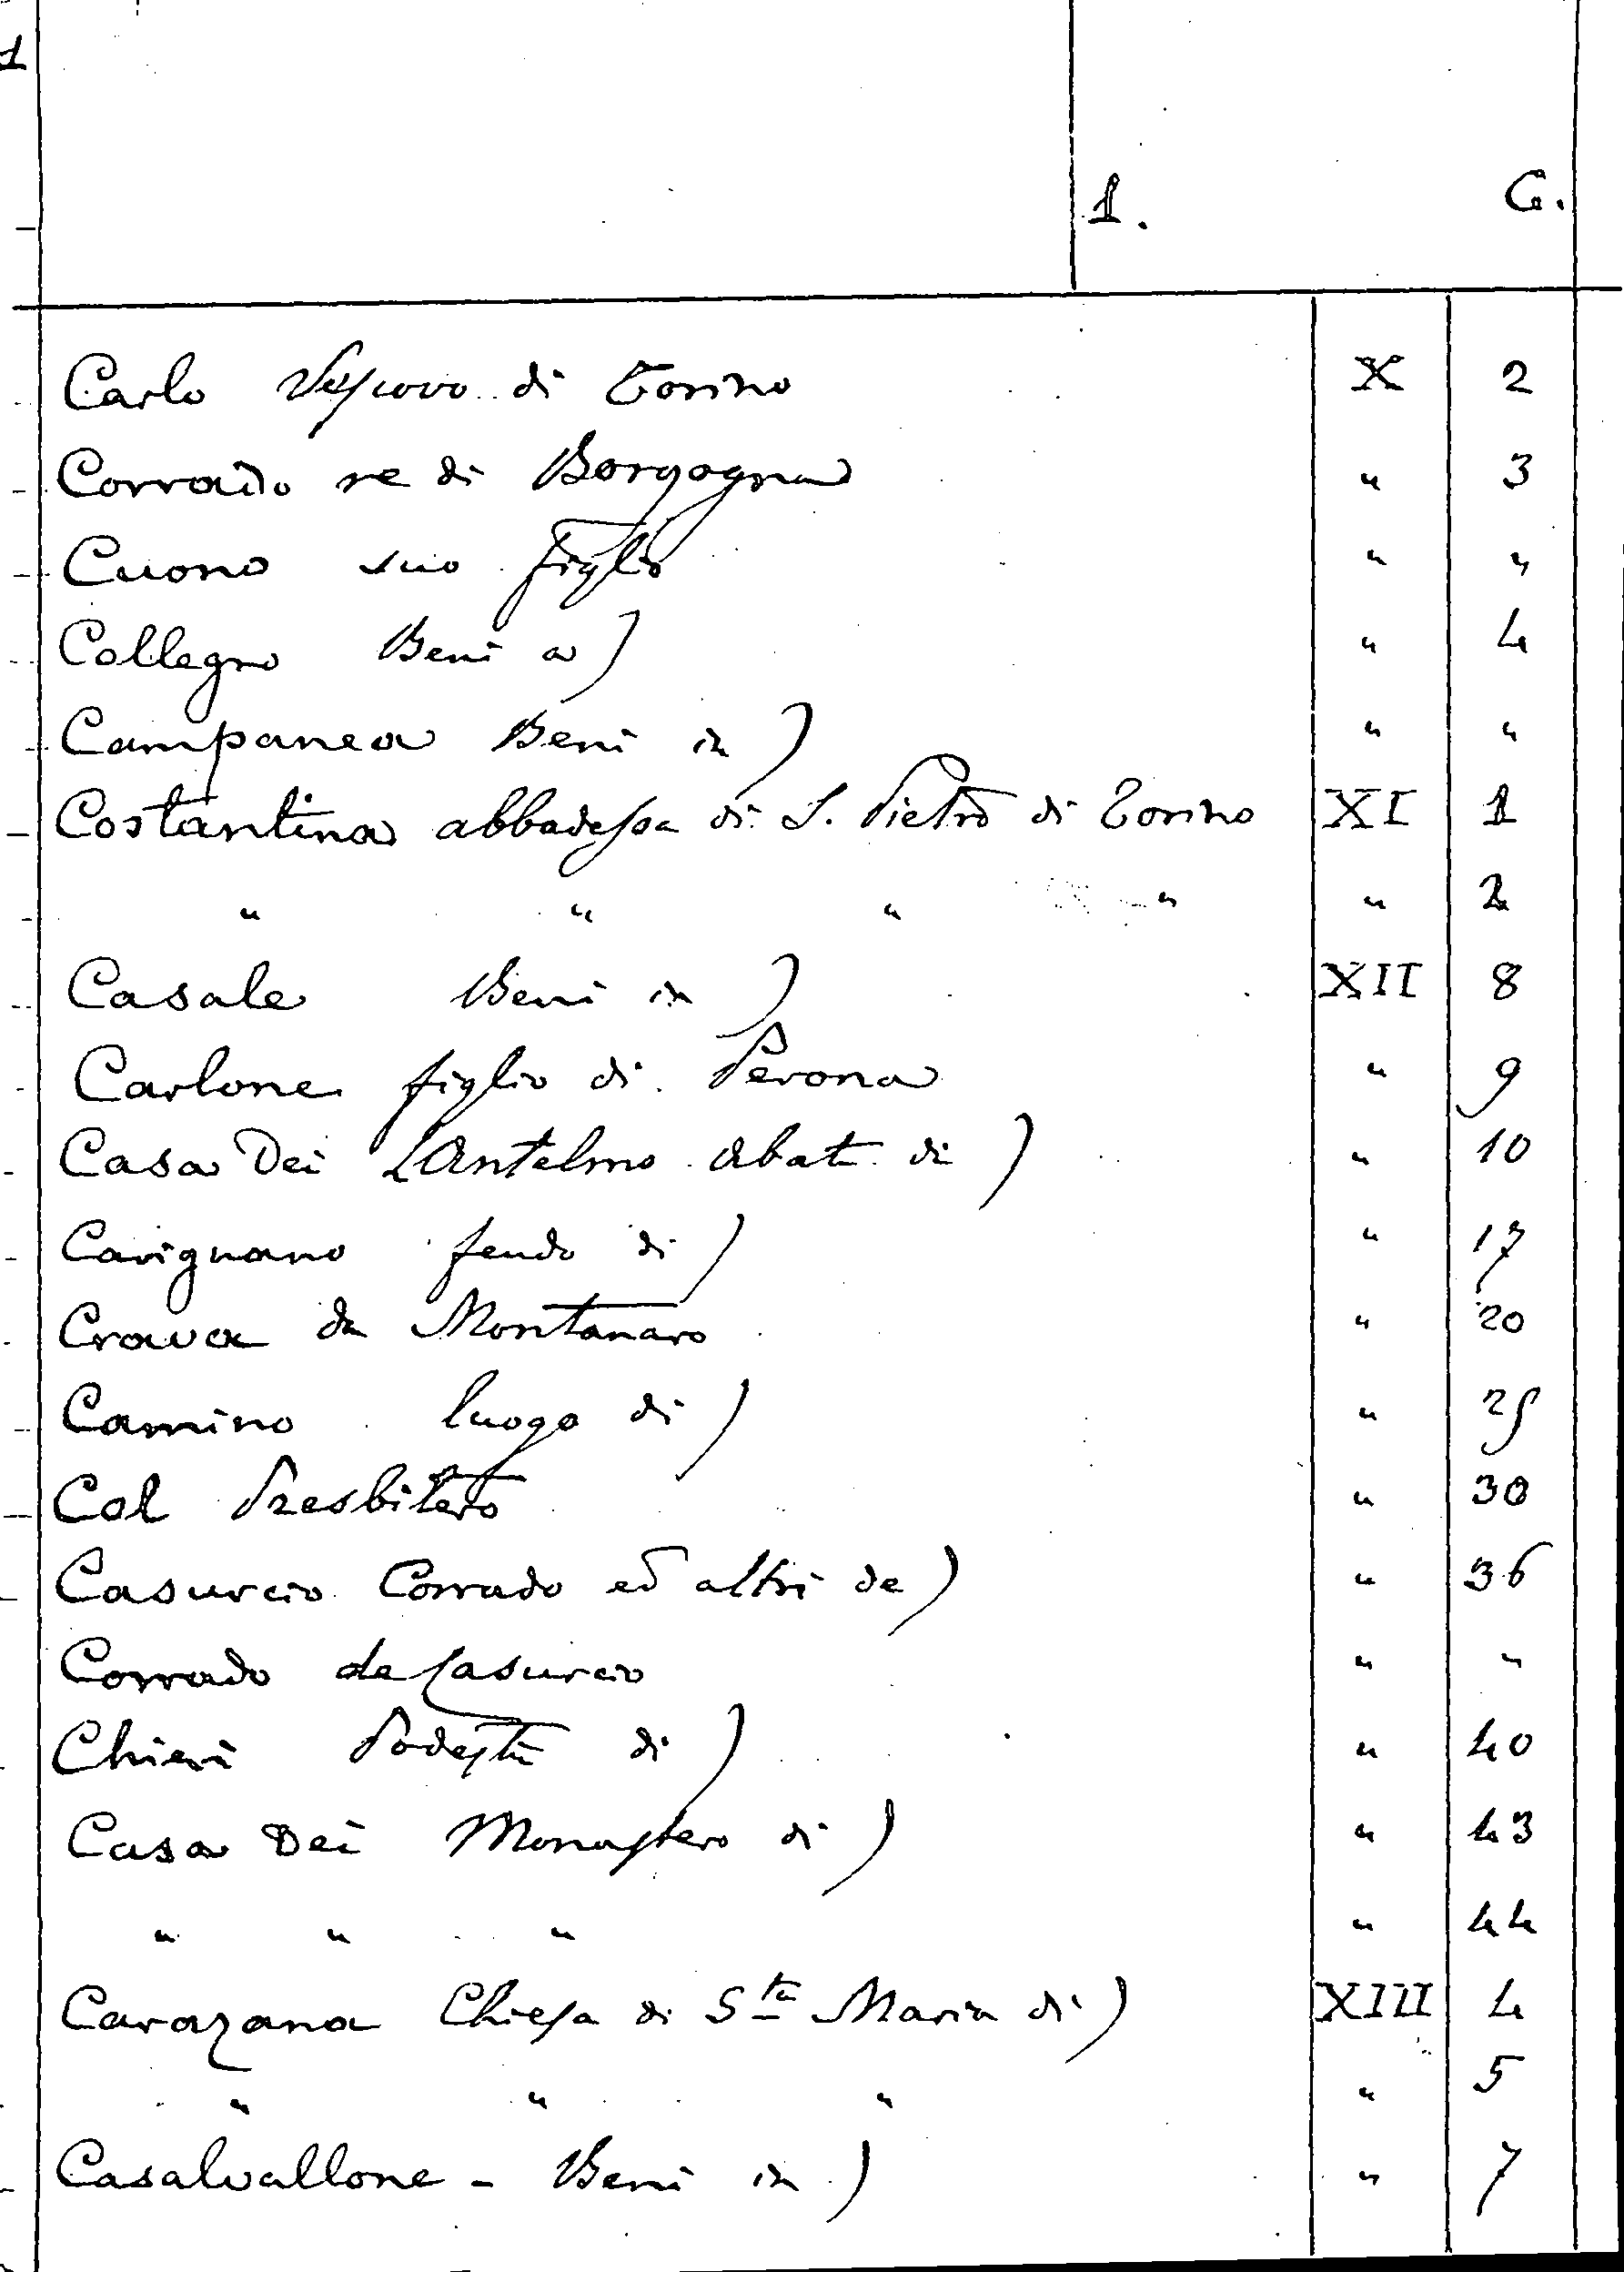 1
1. C.
Carlo Vescovo di Torino X 2
Corrado re di Borgogna " 3
Cuono suo figlio " "
Collegno Beni a) " 4
Campanea Beni in) " "
Costantina abbadessa di S. Pietro di Torino XI 1
" " " " " 2
Casale Beni in) XII 8
Carlone figlio di Perona " 9
Casa Dei Antelmo abate di) " 10
Carignano feudo di) " 17
Crava da Montanaro " 20
Camino luogo di) " 25
Col Presbitero " 30
Casurcio Corrado ed altri de) " 36
Corrado de Casurcio " "
Chieri Podestà di) " 40
Casa Dei Monastero di) " 43
" " " " 44
Carazana Chiesa di Sta Maria di) XIII 4
" " " " 5
Casalvallone - Beni in) " 7